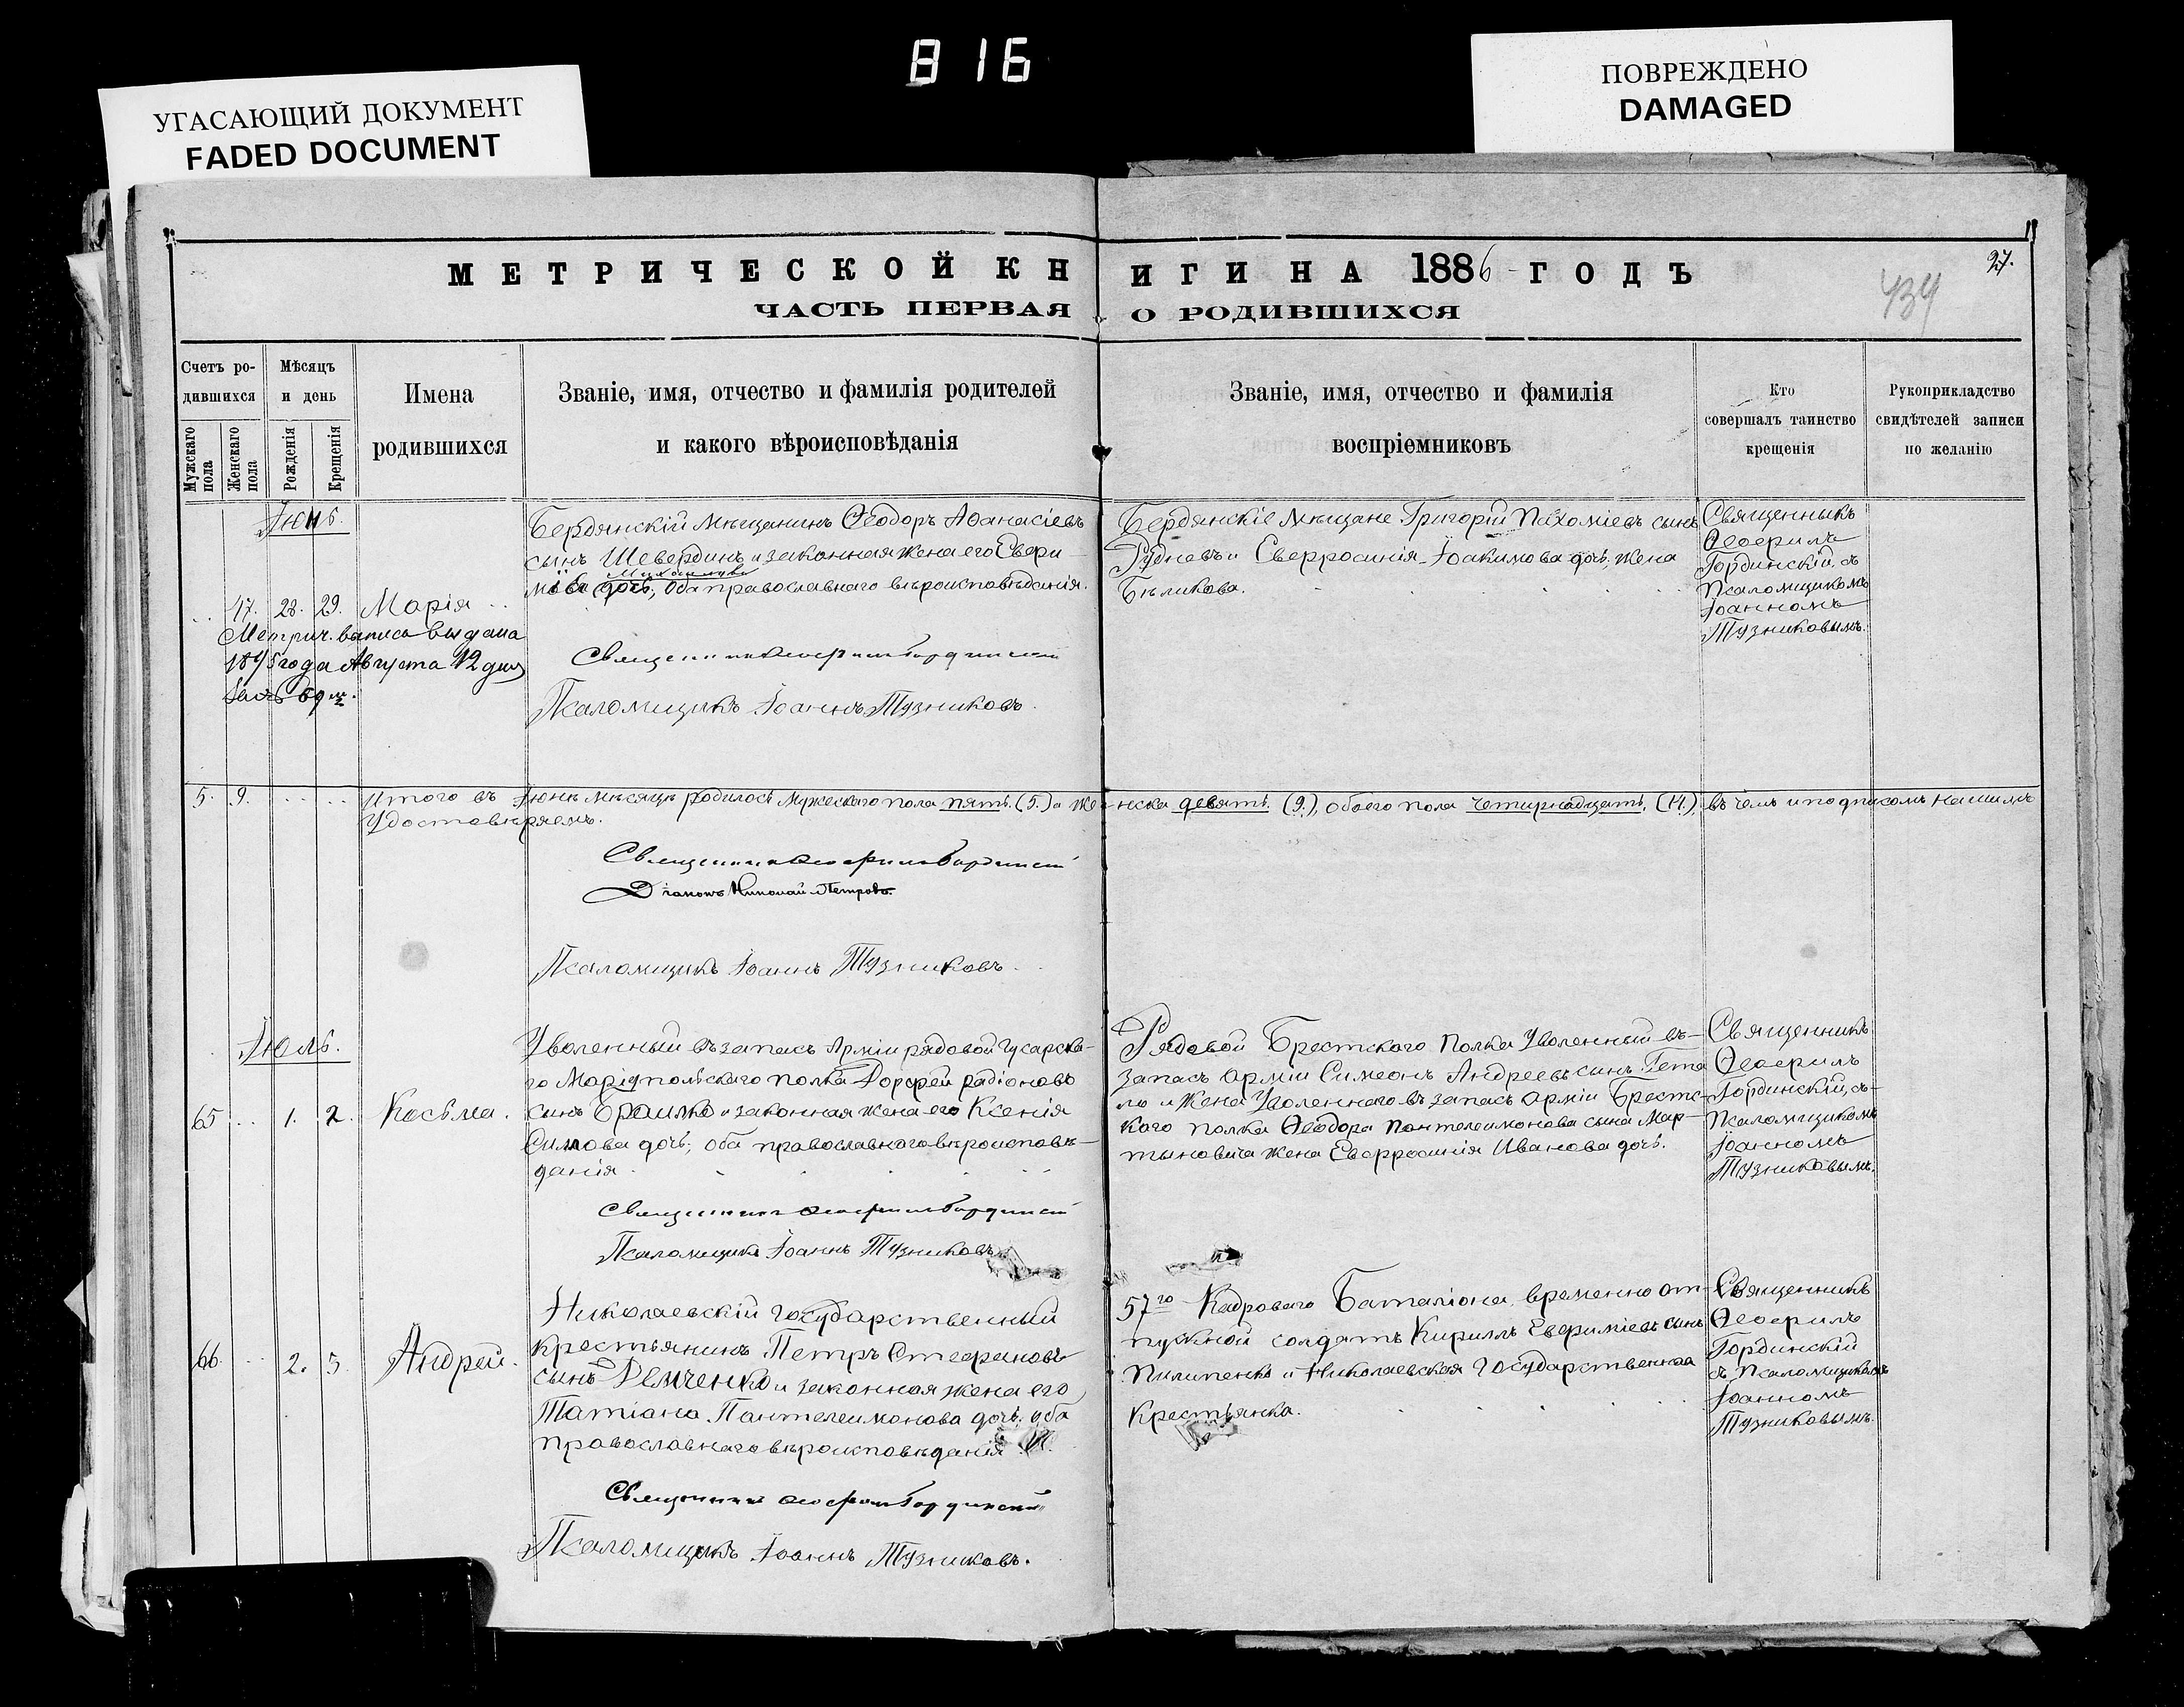 816
УГАСАЮЩИЙ ДОКУМЕНТ
FADED DOCUMENT
ПОВРЕЖДЕНО
DAMAGED
27.
434
МЕТРИЧЕСКОЙ КНИГИ НА 1886 ГОДЪ
ЧАСТЬ ПЕРВАЯ О РОДИВШИХСЯ
Счетъ ро-
дившихся
Мужскаго пола
Женскаго пола
Мѣсяцъ
и день
Рожденія
Крещенія
Имена
родившихся
Званіе, имя, отчество и фамилія родителей
и какого вѣроисповѣданія
Званіе, имя, отчество и фамилія
воспріемниковъ
Кто
совершалъ таинство
крещенія
Рукоприкладство
свидѣтелей записи
по желанію
Іюнь.
47. 28. 29. Марія
Метрич. выпись выдана
1895 года Августа 12 дня
за № 69
Бердянскій мѣщанинъ Ѳеодоръ Аѳанасіевъ
сынъ Шевердинъ и законная жена его Евфи-
мова дочь; оба православнаго вѣроисповѣданія.
Священникъ Ѳеофилъ Гординскій
Псаломщикъ Іоаннъ Тузниковъ.
Бердянскіе мѣщане Григорій Пахоміевъ сынъ
Рудневъ и Евфросинія Іоакимова дочь, жена
Бѣликова.
Священникъ
Ѳеофилъ
Гординскій, съ
Псаломщикомъ
Іоанномъ
Тузниковымъ.
5. 9. Итого въ Іюнѣ мѣсяцѣ родилось мужескаго пола пять. (5.) а женска девять. (9.), обоего пола четырнадцать. (14.), въ чемъ и подписомъ нашимъ
удостовѣряемъ.
Священникъ Ѳеофилъ Гординскій
Діаконъ Николай Петровъ.
Псаломщикъ Іоаннъ Тузниковъ.
Іюль.
65 1. 2. Косьма.
Уволенный въ запасъ Арміи рядовой Гусарска-
го Маріупольскаго полка Дорофей Радіоновъ
сынъ и законная жена его Ксенія
Симова дочь; оба православнаго вѣроисповѣ-
данія.
Священникъ Ѳеофилъ Гординскій
Псаломщикъ Іоаннъ Тузниковъ.
Рядовой Брестскаго полка Уволенный въ
запасъ арміи Симеонъ Андреевъ сынъ Гета
ло и жена Уволеннаго въ запасъ арміи Брестс-
каго полка Ѳеодора Пантелеимонова сына Мар-
тыновича жена Евфросинія Иванова дочь.
Священникъ
Ѳеофилъ
Гординскій, съ
Псаломщикомъ
Іоанномъ
Тузниковымъ.
66. 2. 3. Андрей.
Николаевскій государственный
крестьянинъ Петръ Стефановъ
сынъ Демченко и законная жена его
Татіана Пантелеимонова дочь; оба
православнаго вѣроисповѣданія.
Священникъ Ѳеофилъ Гординскій
Псаломщикъ Іоаннъ Тузниковъ.
57го Кадроваго Баталіона, временно от-
пускной солдатъ Кириллъ Евфиміевъ сынъ
Пилипенко и Николаевская государственная
крестьянка.
Священникъ
Ѳеофилъ
Гординскій
съ Псаломщикомъ
Іоанномъ
Тузниковымъ.